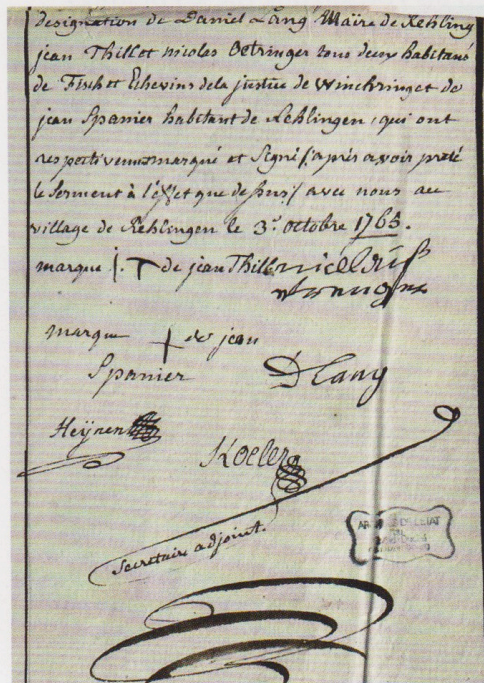 designation de Daniel Lang Maire de Rehling
jean Thill et nicolas Oetringer tous deux habitans
de Fisch et Echevins dela justice de Winchring et de
jean Spanier habitant de Rehlingen, qui ont
respectivemt marqué et Signé /: après avoir preté
le serment à l'effet que dessus :/ avec nous au
village de Rehlingen le 3.e octobre 1763.
marque j. T de jean Thill nicollas
marque + de jean
Spanier
D Lang
Heÿnen
Koeler
Secretaire adjoint.
ARCHIVES DE L'ETAT